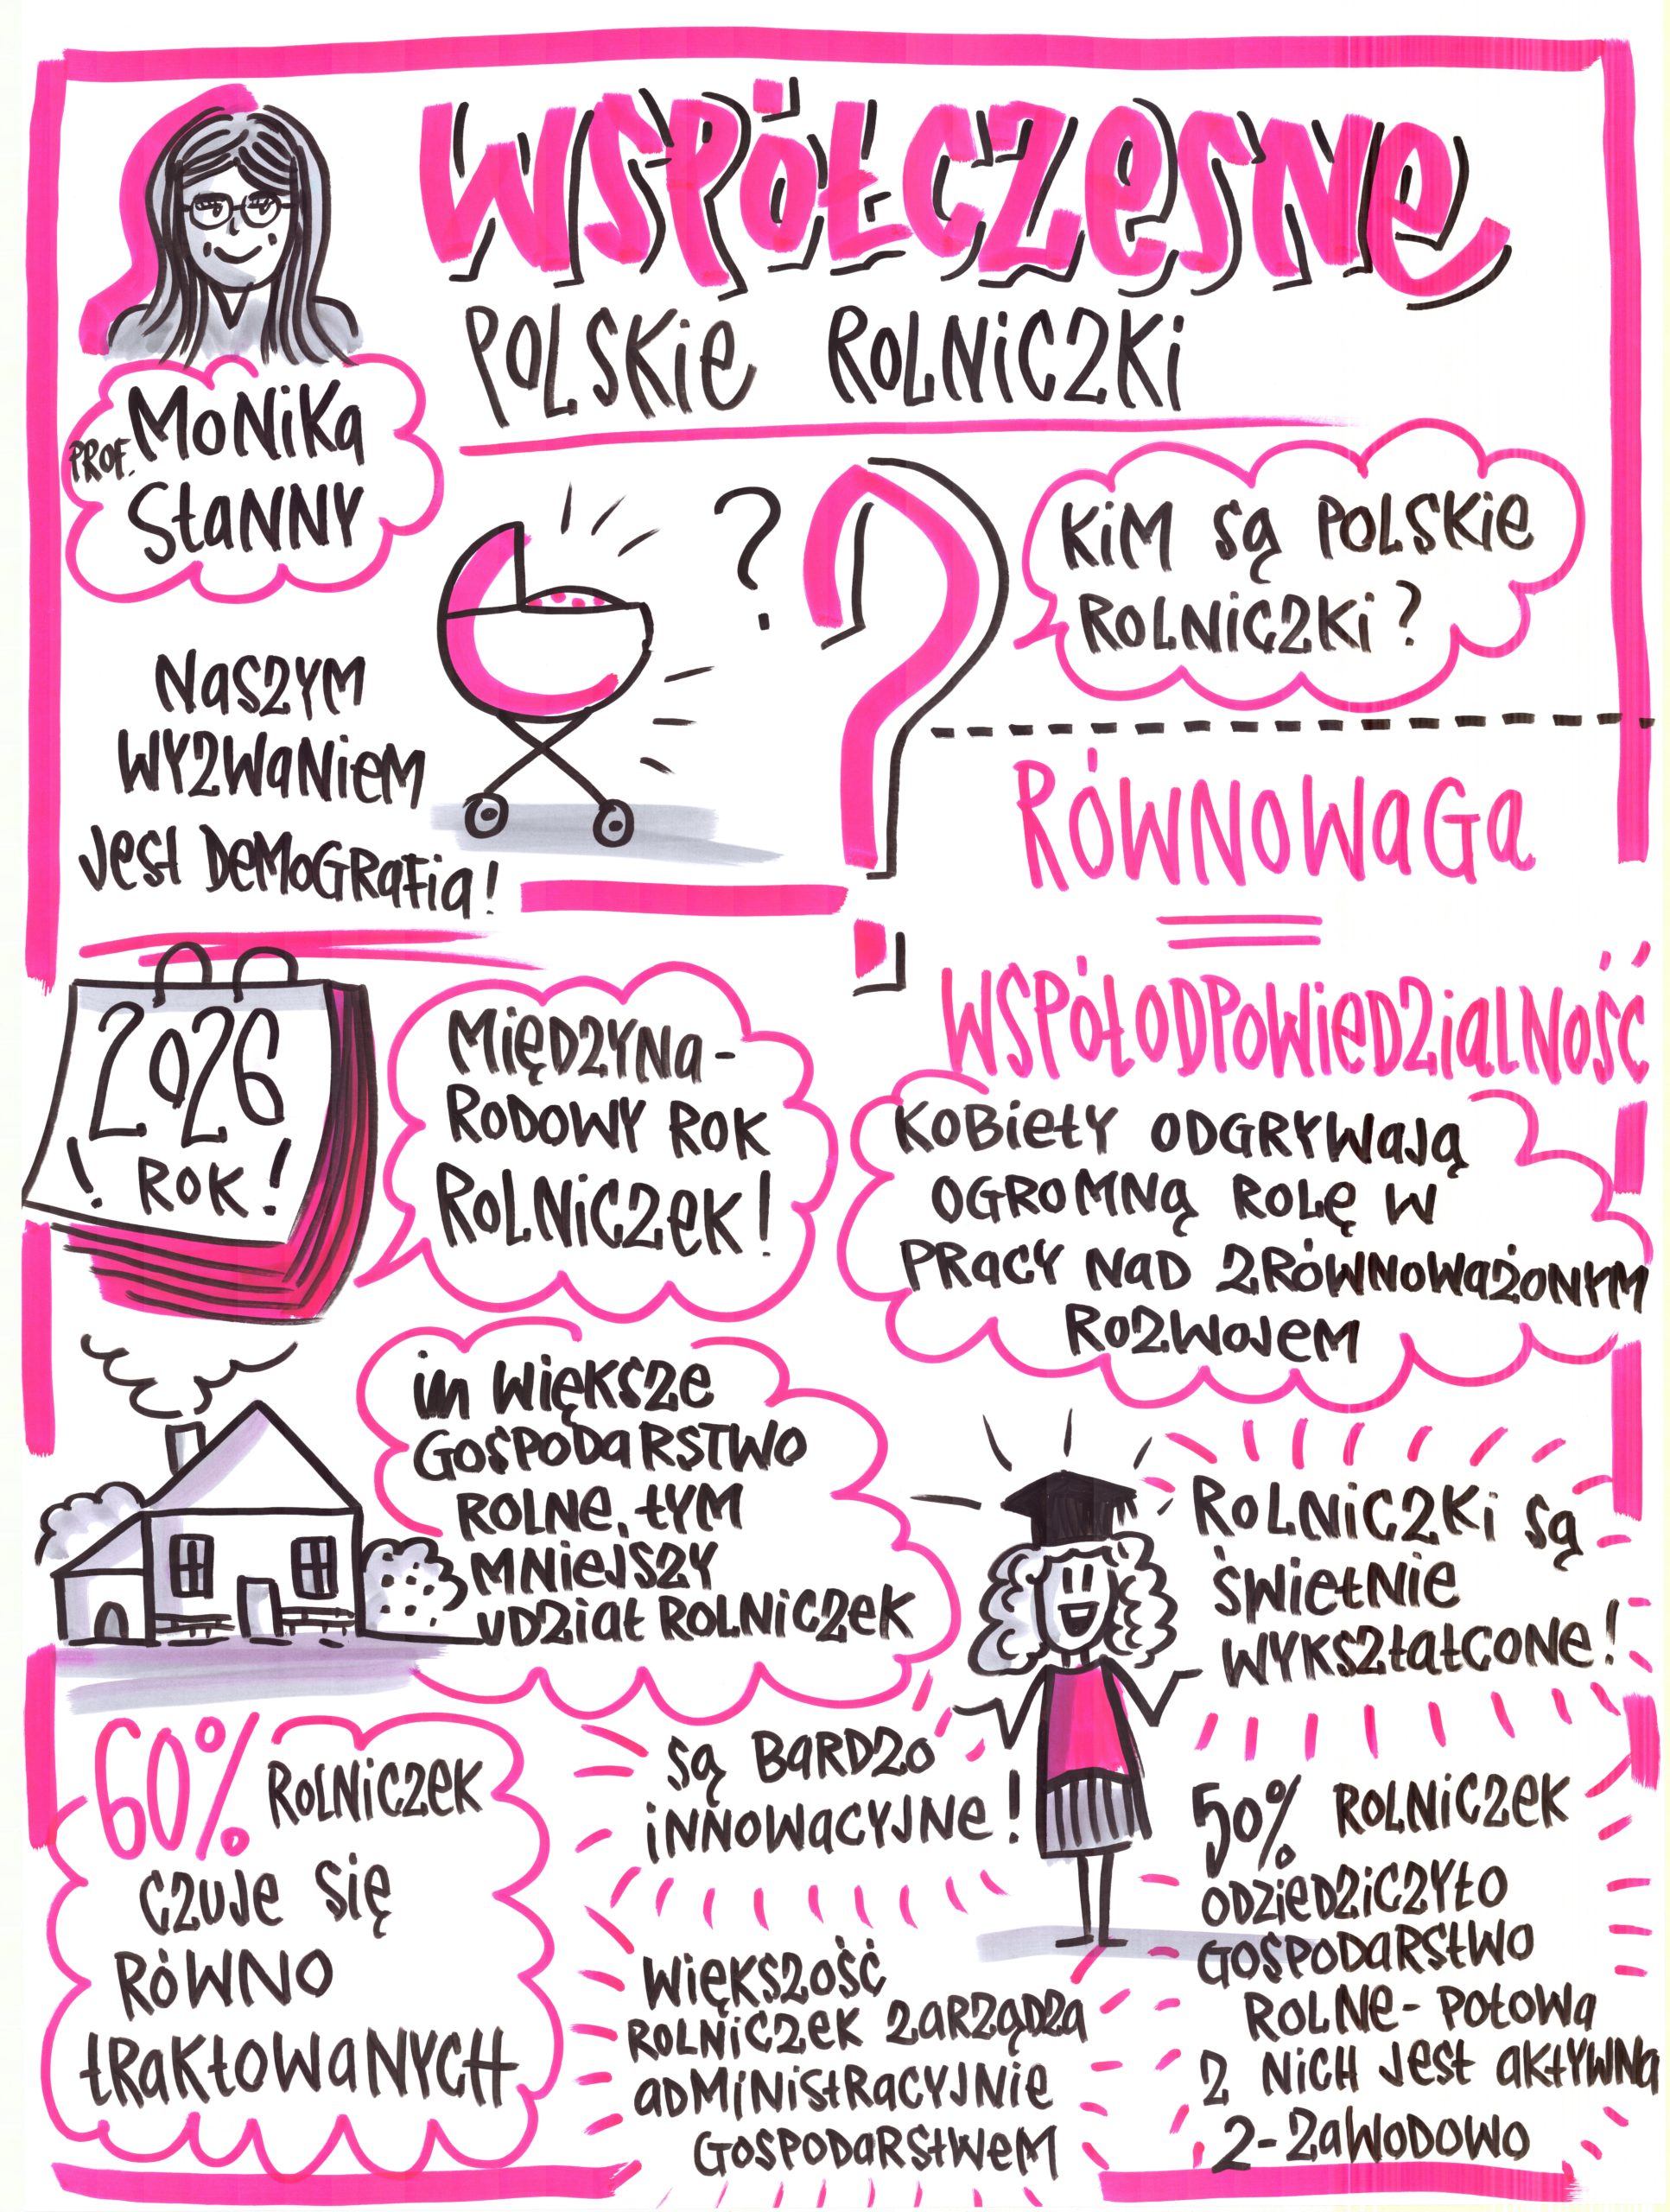 WSPÓŁCZESNE
POLSKIE ROLNICZKI
PROF. MONIKA
STANNY
KIM SĄ POLSKIE
ROLNICZKI?
NASZYM
WYZWANIEM
JEST DEMOGRAFIA!
?
RÓWNOWAGA
=
WSPÓŁODPOWIEDZIALNOŚĆ
2026
! ROK!
MIĘDZYNA-
RODOWY ROK
ROLNICZEK!
KOBIETY ODGRYWAJĄ
OGROMNĄ ROLĘ W
PRACY NAD ZRÓWNOWAŻONYM
ROZWOJEM
im WIĘKSZE
GOSPODARSTWO
ROLNE, TYM
MNIEJSZY
UDZIAŁ ROLNICZEK
ROLNICZKI SĄ
ŚWIETNIE
WYKSZTAŁCONE!
60% ROLNICZEK
CZUJE SIĘ
RÓWNO
TRAKTOWANYCH
SĄ BARDZO
INNOWACYJNE!
WIĘKSZOŚĆ
ROLNICZEK ZARZĄDZA
ADMINISTRACYJNIE
GOSPODARSTWEM
50% ROLNICZEK
ODZIEDZICZYŁO
GOSPODARSTWO
ROLNE - POŁOWA
Z NICH JEST AKTYWNA
2-ZAWODOWO